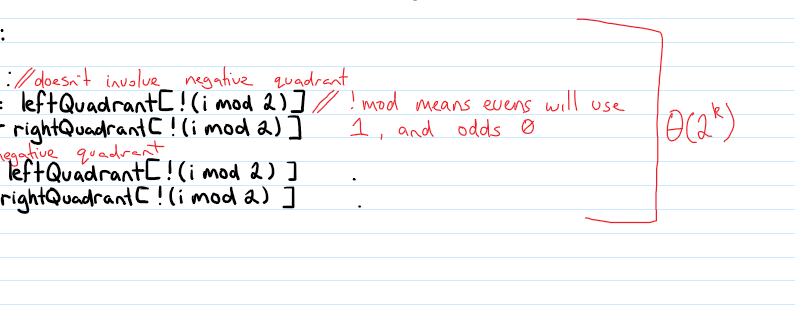 :
: //doesn't involve negative quadrant
: leftQuadrant[!(i mod 2)] // !mod means evens will use
- rightQuadrant[!(i mod 2)] 1, and odds 0
negative quadrant
leftQuadrant[!(i mod 2)] .
rightQuadrant[!(i mod 2)] .
θ(2^k)